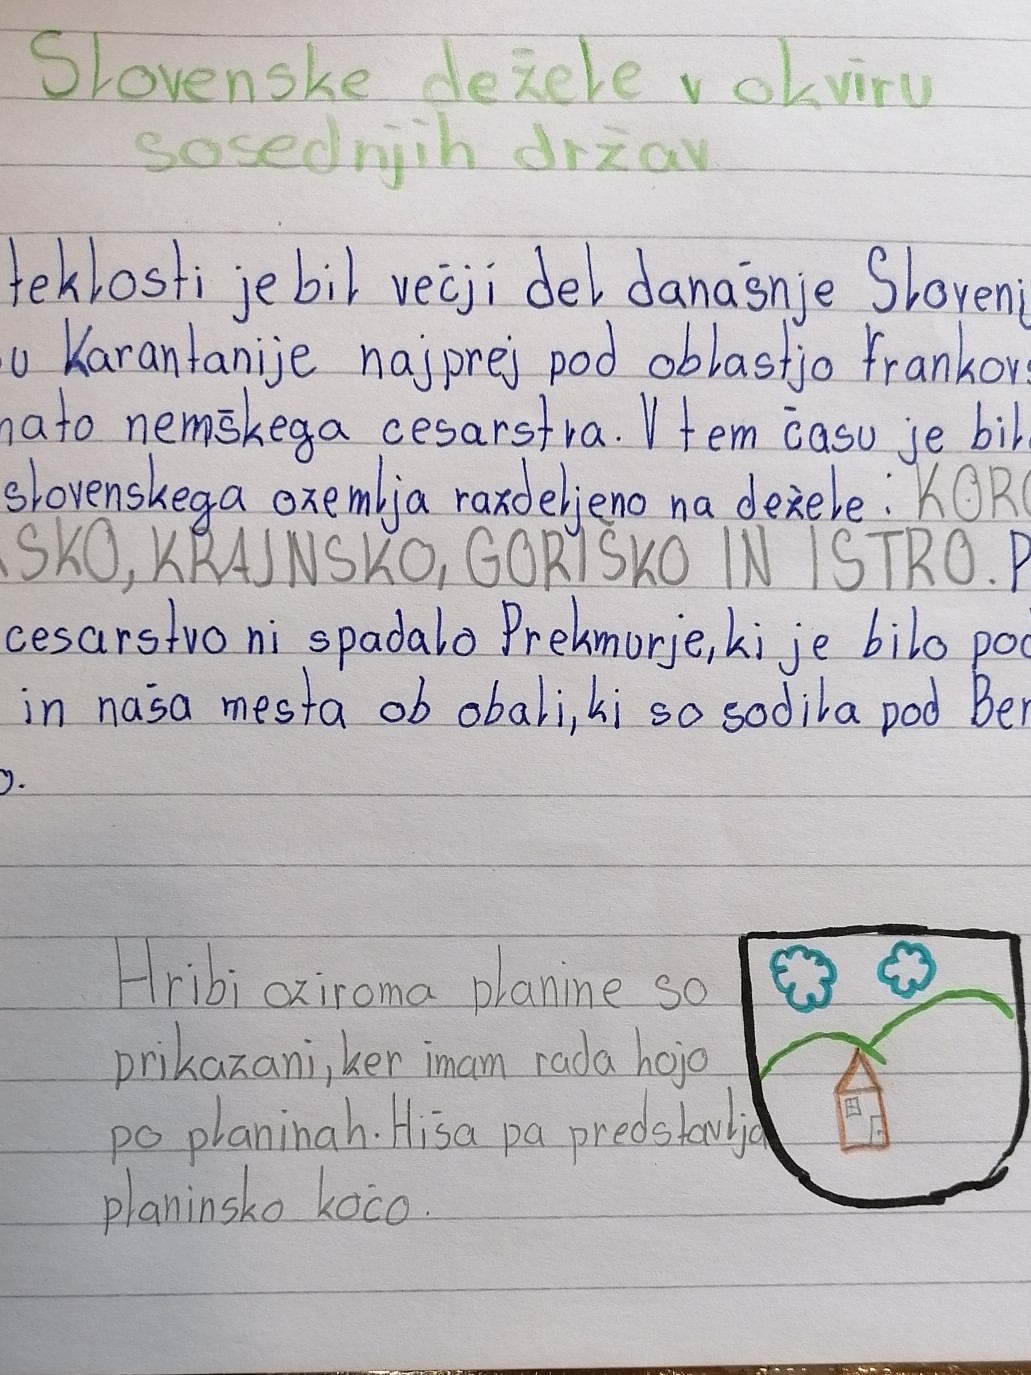 Slovenske dežele v okviru
sosednjih držav
teklosti je bil večji del današnje Sloveni
u Karantanije najprej pod oblastjo frankovs
nato nemškega cesarstva. V tem času je bil
slovenskega ozemlja razdeljeno na dežele: KORO
SKO, KRAJNSKO, GORIŠKO IN ISTRO. P
cesarstvo ni spadalo Prekmurje, ki je bilo pod
in naša mesta ob obali, ki so sodila pod Ben
o.
Hribi oziroma planine so
prikazani, ker imam rada hojo
po planinah. Hiša pa predstavlja
planinsko kočo.